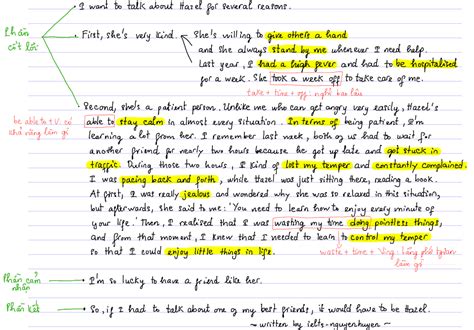 • I want to talk about Hazel for several reasons.
Phần cốt lõi
• First, she's very kind. She's willing to give others a hand
and she always stand by me whenever I need help.
Last year, I had a high fever and had to be hospitalised
for a week. She took a week off to take care of me.
take + time + off: nghỉ bao lâu
• Second, she's a patient person. Unlike me who can get angry very easily, Hazel's
be able to + V: có khả năng làm gì
able to stay calm in almost every situation. In terms of being patient, I'm
learning a lot from her. I remember last week, both of us had to wait for
another friend for nearly two hours because he got up late and got stuck in
traffic. During those two hours, I kind of lost my temper and constantly complained.
I was pacing back and forth, while Hazel was just sitting there, reading a book.
At first, I was really jealous and wondered why she was so relaxed in this situation,
but afterwards, she said to me: 'You need to learn how to enjoy every minute of
your life.' Then, I realised that I was wasting my time doing pointless things,
and from that moment, I knew that I needed to learn to control my temper
so that I could enjoy little things in life.
waste + time + Ving: lãng phí thời gian làm gì
Phần cảm nhận
• I'm so lucky to have a friend like her.
Phần kết
• So, if I had to talk about one of my best friends, it would have to be Hazel.
~ written by ielts-nguyenhuyen ~